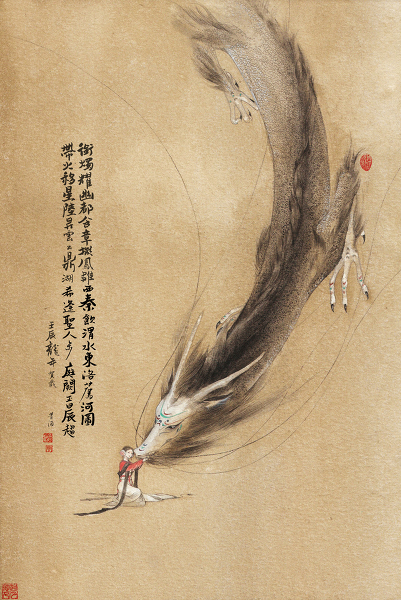 銜燭耀幽都含章擬鳳雛西秦飲渭水東洛薦河圖
帶火移星陸昇雲出鼎湖希逢聖人步庭闕正晨趨
壬辰龍年